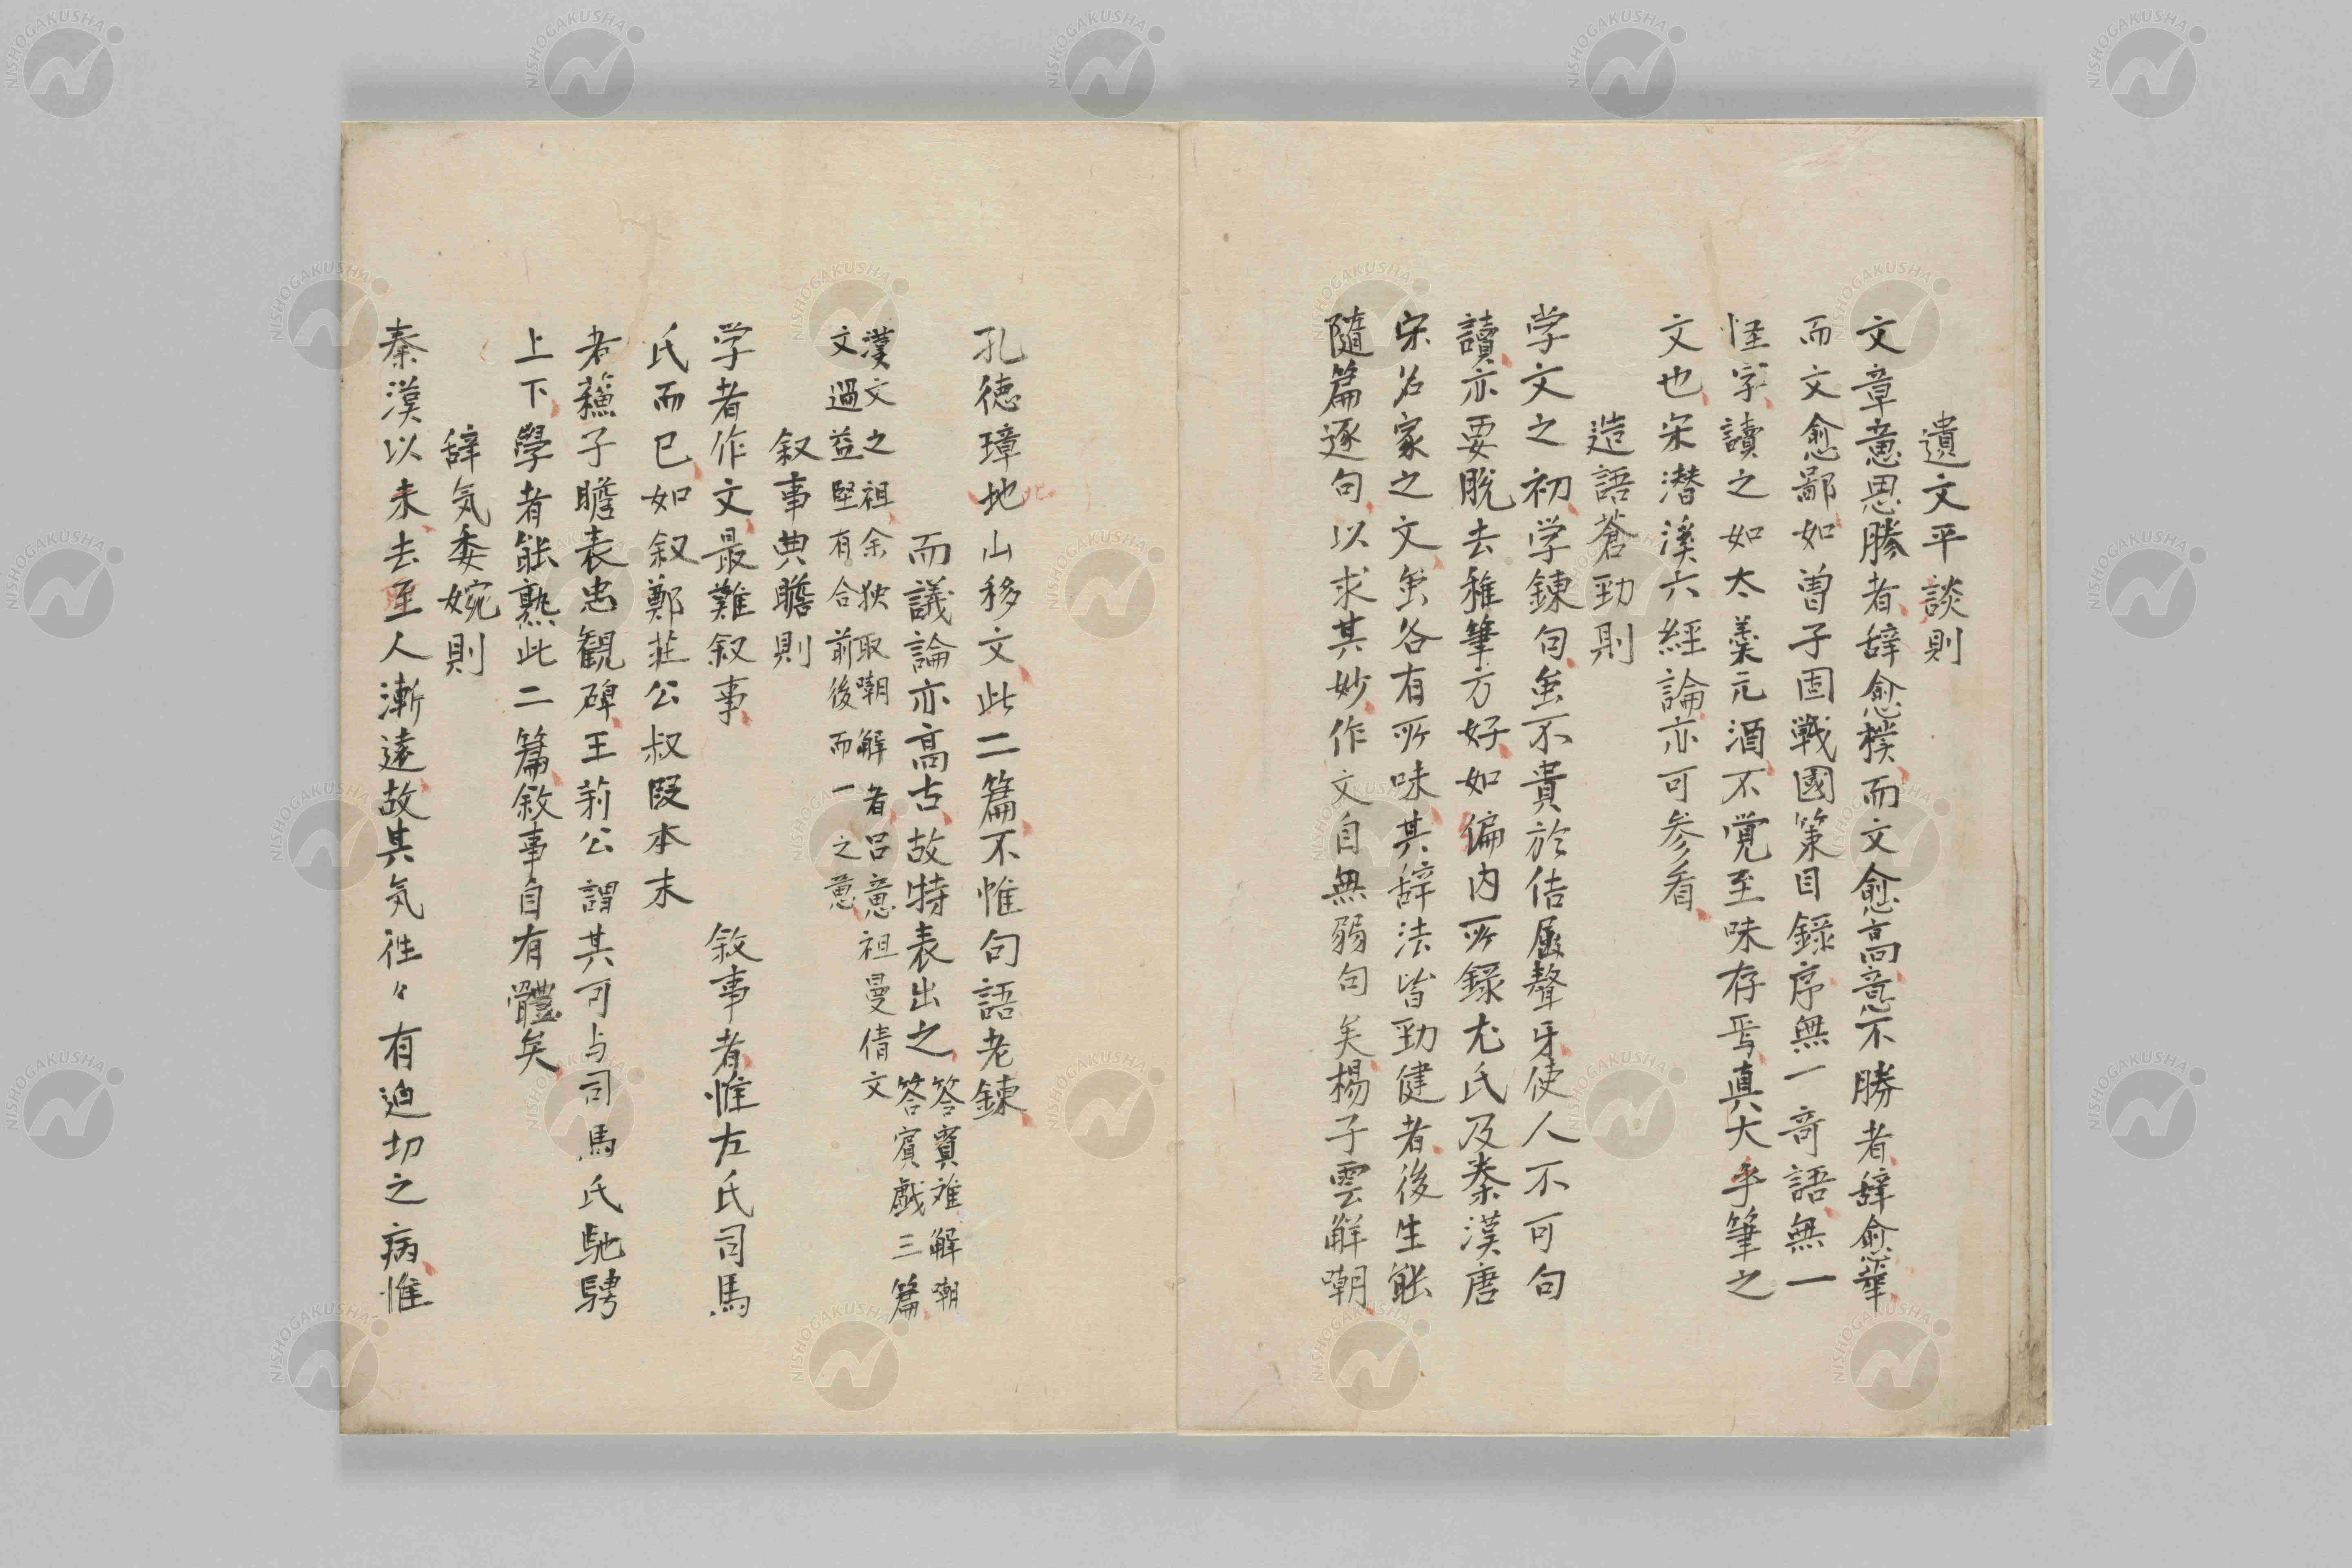 遺文平談則
文章意思勝者辞愈樸而文愈高意不勝者辞愈華
而文愈鄙如曽子固戦國策目録序無一竒語無一
怪字讀之如太羹元酒不覚至味存焉真大手筆之
文也宋潜溪六經論亦可参看
造語蒼勁則
学文之初学錬句虽不貴於佶屈聱牙使人不可句
讀亦要脱去稚筆方好如偏内所録尤氏及秦漢唐
宋名家之文虽各有所味其辞法皆勁健者後生能
隨篇逐句以求其妙作文自無弱句矣楊子雲解嘲
孔徳璋地山移文此二篇不惟句語老錬
北
而議論亦高古故特表出之
答賓难解嘲
答賓戯三篇
漢文之祖余狄取嘲解者呂意祖曼倩文
文過益堅有合前後而一之意
叙事典贍則
学者作文最難叙事 敘事者惟左氏司馬
氏而已如叙鄭荘公叔段本末
者蘓子瞻表忠観碑王荊公謂其可与司馬氏馳騁
上下學者能熟此二篇敘事自有體矣
辞気委婉則
秦漢以来去至人漸遠故其気徃々有迫切之病惟
NISHOGAKUSHA